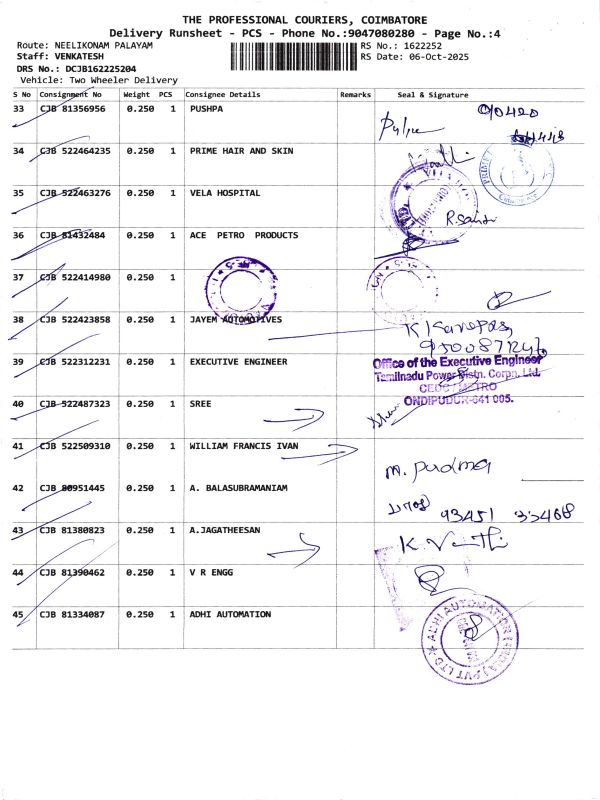 THE PROFESSIONAL COURIERS, COIMBATORE
Delivery Runsheet - PCS - Phone No.:9047080280 - Page No.:4
Route: NEELIKONAM PALAYAM
RS No.: 1622252
Staff: VENKATESH
RS Date: 06-Oct-2025
DRS No.: DCJB162225204
Vehicle: Two Wheeler Delivery
S No Consignment No Weight PCS Consignee Details Remarks Seal & Signature
33 CJB 81356956 0.250 1 PUSHPA
34 CJB 522464235 0.250 1 PRIME HAIR AND SKIN
35 CJB 522463276 0.250 1 VELA HOSPITAL
36 CJB 81432484 0.250 1 ACE PETRO PRODUCTS
37 CJB 522414980 0.250 1
38 CJB 522423858 0.250 1 JAYEM AUTOMOTIVES
39 CJB 522312231 0.250 1 EXECUTIVE ENGINEER
Office of the Executive Engineer
Tamilnadu Power Distn. Corpn. Ltd.
CEDC / METRO
ONDIPUDUR-641 005.
40 CJB 522487323 0.250 1 SREE
41 CJB 522509310 0.250 1 WILLIAM FRANCIS IVAN
M. Padma
42 CJB 80951445 0.250 1 A. BALASUBRAMANIAM
93451 33468
43 CJB 81380823 0.250 1 A.JAGATHEESAN
44 CJB 81390462 0.250 1 V R ENGG
45 CJB 81334087 0.250 1 ADHI AUTOMATION
ADHI AUTOMATION (INDIA) PVT LTD